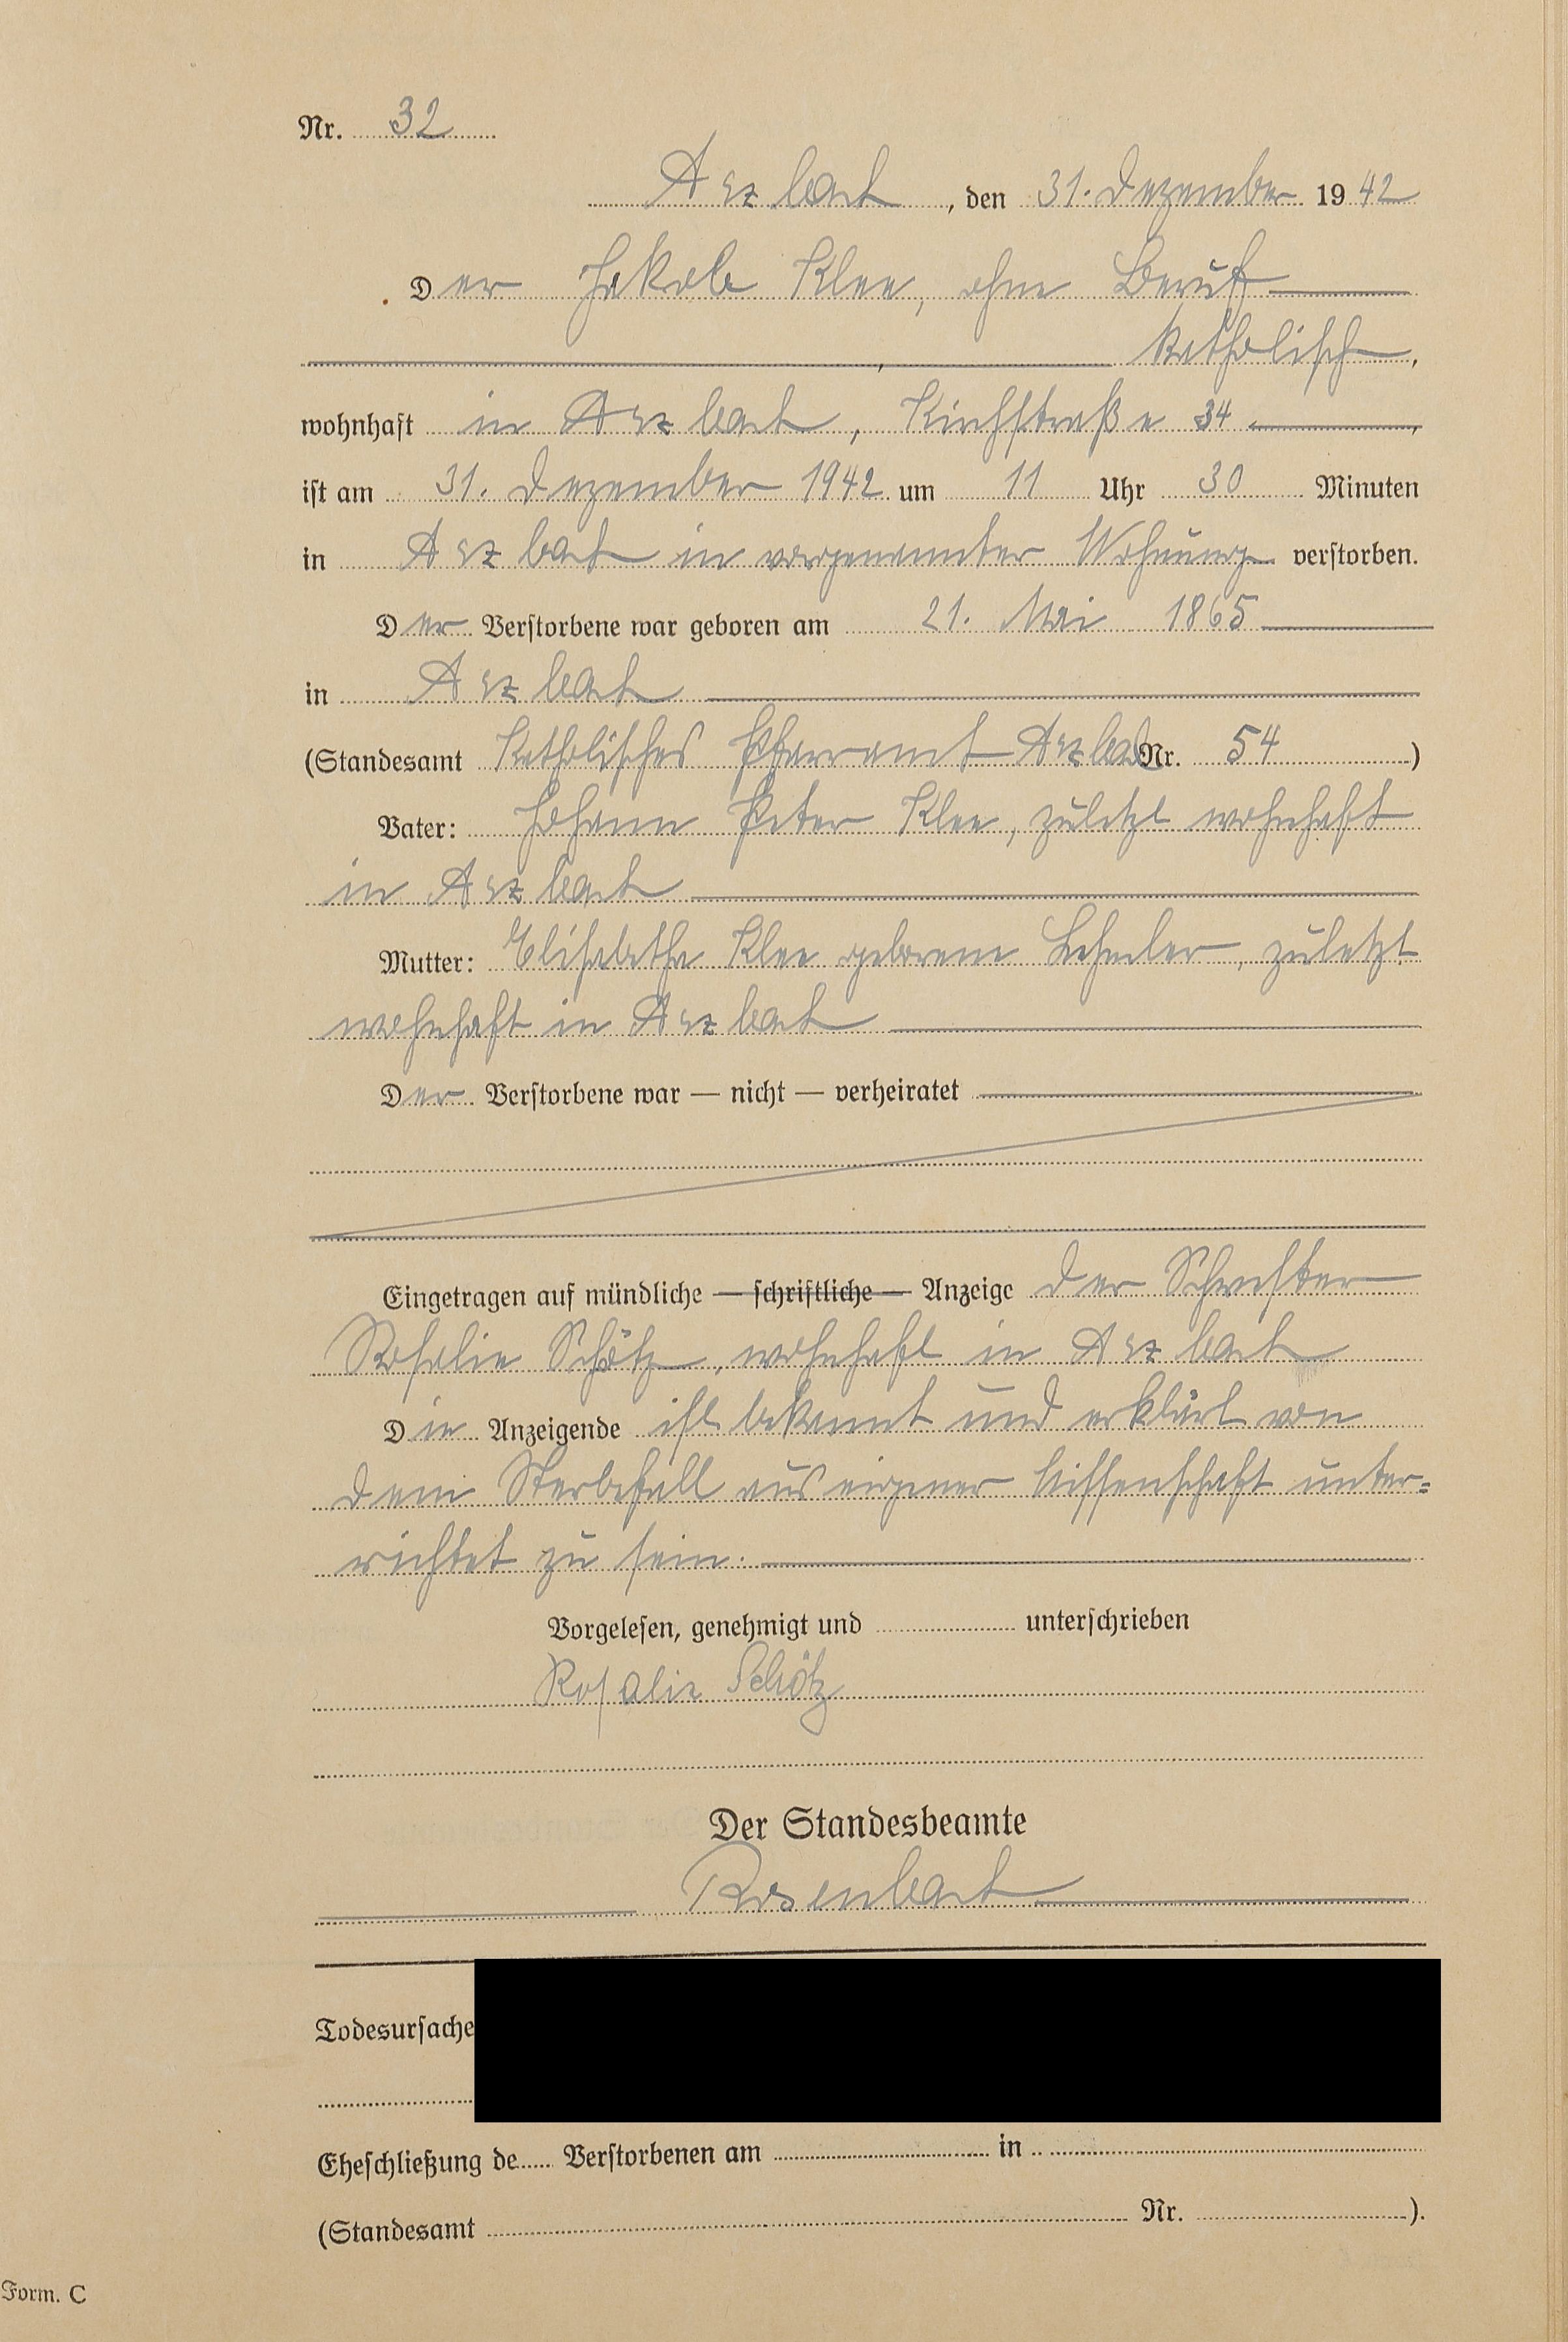 Nr. 32
Arzbach, den 31. Dezember 1942
Der Jakob Klee, ohne Beruf
katholisch,
wohnhaft in Arzbach, Kirchstraße 34,
ist am 31. Dezember 1942 um 11 Uhr 30 Minuten
in Arzbach in vorgenannter Wohnung verstorben.
Der Verstorbene war geboren am 21. Mai 1865
in Arzbach
(Standesamt Katholisches Pfarramt Arzbach Nr. 54)
Vater: Johann Peter Klee, zuletzt wohnhaft
in Arzbach
Mutter: Elisabetha Klee geborene, zuletzt
wohnhaft in Arzbach
Der Verstorbene war — nicht — verheiratet
Eingetragen auf mündliche — schriftliche — Anzeige der Schwester
Rosalie Schötz, wohnhaft in Arzbach
Die Anzeigende ist bekannt und erklärt von
dem Sterbefall aus eigener Wissenschaft unter=
richtet zu sein.
Vorgelesen, genehmigt und unterschrieben
Rosalie Schötz
Der Standesbeamte
Rosenbach
Todesursache
Eheschließung de Verstorbenen am in
(Standesamt Nr. ).
Form. C